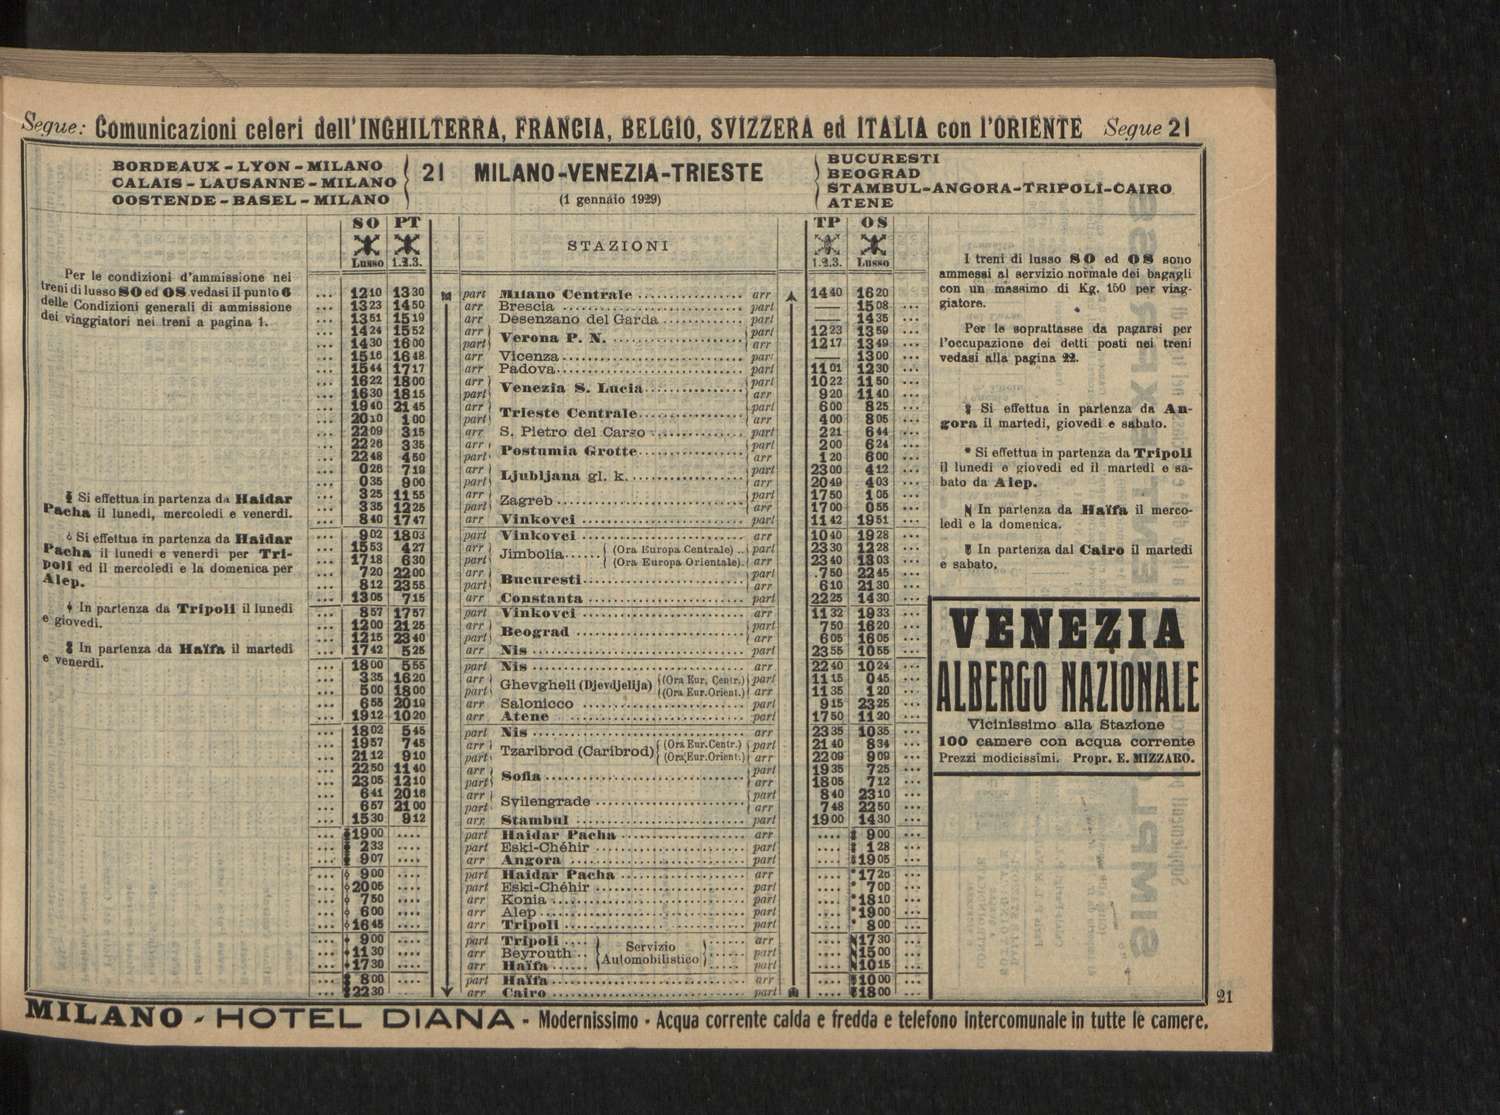 Segue: Comunicazioni celeri dell'INGHILTERRA, FRANCIA, BELGIO, SVIZZERA ed ITALIA con l'ORIENTE Segue 21
BORDEAUX - LYON - MILANO
CALAIS - LAUSANNE - MILANO
OOSTENDE - BASEL - MILANO
21 MILANO-VENEZIA-TRIESTE
(1 gennaio 1929)
BUCURESTI
BEOGRAD
STAMBUL-ANGORA-TRIPOLI-CAIRO
ATENE
Per le condizioni d'ammissione nei
treni di lusso SO ed OS vedasi il punto 6
delle Condizioni generali di ammissione
dei viaggiatori nei treni a pagina 1.
Si effettua in partenza da Haidar
Pacha il lunedi, mercoledi e venerdi.
Si effettua in partenza da Haidar
Pacha il lunedi e venerdi per Tri-
poli ed il mercoledi e la domenica per
Alep.
In partenza da Tripoli il lunedi
e giovedi.
In partenza da Haïfa il martedi
e venerdi.
SO PT STAZIONI TP OS
Lusso 1.2.3. 1.2.3. Lusso
... 1210 1330 part Milano Centrale arr 1440 1620
... 1323 1450 arr Brescia part — 1508 ...
... 1351 1519 arr Desenzano del Garda part — 1435 ...
... 1424 1552 arr Verona P. N. part 1223 1359 ...
... 1430 1600 part arr 1217 1349 ...
... 1516 1648 arr Vicenza part — 1300 ...
... 1544 1717 arr Padova part 1101 1230 ...
... 1622 1800 arr Venezia S. Lucia part 1022 1150 ...
... 1630 1815 part arr 920 1140 ...
... 1940 2145 arr Trieste Centrale part 600 825 ...
... 2010 100 part arr 400 805 ...
... 2209 315 arr S. Pietro del Carso part 221 644 ...
... 2226 335 arr Postumia Grotte part 200 624 ...
... 2248 450 part arr 120 600 ...
... 026 719 arr Ljubljana gl. k. part 2300 412 ...
... 035 900 part arr 2049 403 ...
... 325 1155 arr Zagreb part 1750 105 ...
... 335 1225 part arr 1700 055 ...
... 840 1747 arr Vinkovci part 1142 1951 ...
... 902 1803 part Vinkovci arr 1040 1928 ...
... 1553 427 arr Jimbolia (Ora Europa Centrale) part 2330 1228 ...
... 1718 630 part (Ora Europa Orientale) arr 2340 1803 ...
... 720 2200 arr Bucuresti part 750 2245 ...
... 812 2355 part arr 610 2130 ...
... 1305 715 arr Constanta part 2225 1430 ...
... 857 1757 part Vinkovci arr 1132 1933 ...
... 1200 2125 arr Beograd part 750 1620 ...
... 1215 2340 part arr 605 1605 ...
... 1742 525 arr Nis part 2355 1055 ...
... 1800 555 part Nis arr 2240 1024 ...
... 335 1620 arr Ghevgheli (Djevdjelija) (Ora Eur. Centr.) part 1115 045 ...
... 500 1800 part (Ora Eur.Orient.) arr 1135 120 ...
... 655 2019 arr Salonicco part 915 2325 ...
... 1912 1020 arr Atene part 1750 1120 ...
... 1802 545 part Nis arr 2335 1035 ...
... 1957 745 arr Tzaribrod (Caribrod) (Ora Eur.Centr.) part 2140 834 ...
... 2112 910 part (Ora Eur.Orient.) arr 2209 909 ...
... 2250 1140 arr Sofia part 1935 725 ...
... 2305 1210 part arr 1805 712 ...
... 641 2016 arr Svilengrade part 840 2310 ...
... 657 2100 part arr 748 2250 ...
... 1530 912 arr Stambul part 1900 1430 ...
... 1900 .... part Haidar Pacha arr .... 900 ...
... 233 .... part Eski-Chéhir part .... 128 ...
... 907 .... arr Angora part .... 1905 ...
... 900 .... part Haidar Pacha arr .... *1725 ...
... 2005 .... part Eski-Chéhir part .... *700 ...
... 750 .... part Konia part .... *1810 ...
... 600 .... arr Alep part .... *1900 ...
... 1645 .... arr Tripoli part .... *800 ...
... 900 .... part Tripoli Servizio arr .... 1730 ...
... 1130 .... arr Beyrouth Automobilistico part .... 1500 ...
... 1730 .... arr Haïfa part .... 1015 ...
... 800 .... part Haïfa arr .... 1000 ...
... 2230 .... arr Cairo part .... 1800 ...
I treni di lusso SO ed OS sono
ammessi al servizio normale dei bagagli
con un massimo di Kg. 150 per viag-
giatore.
Per le soprattasse da pagarsi per
l'occupazione dei detti posti nei treni
vedasi alla pagina 22.
Si effettua in partenza da An-
gora il martedi, giovedi e sabato.
* Si effettua in partenza da Tripoli
il lunedi e giovedi ed il martedi e sa-
bato da Alep.
In partenza da Haïfa il merco-
ledi e la domenica.
In partenza dal Cairo il martedi
e sabato.
VENEZIA
ALBERGO NAZIONALE
Vicinissimo alla Stazione
100 camere con acqua corrente
Prezzi modicissimi. Propr. E. MIZZARO.
21
MILANO - HOTEL DIANA - Modernissimo - Acqua corrente calda e fredda e telefono intercomunale in tutte le camere.